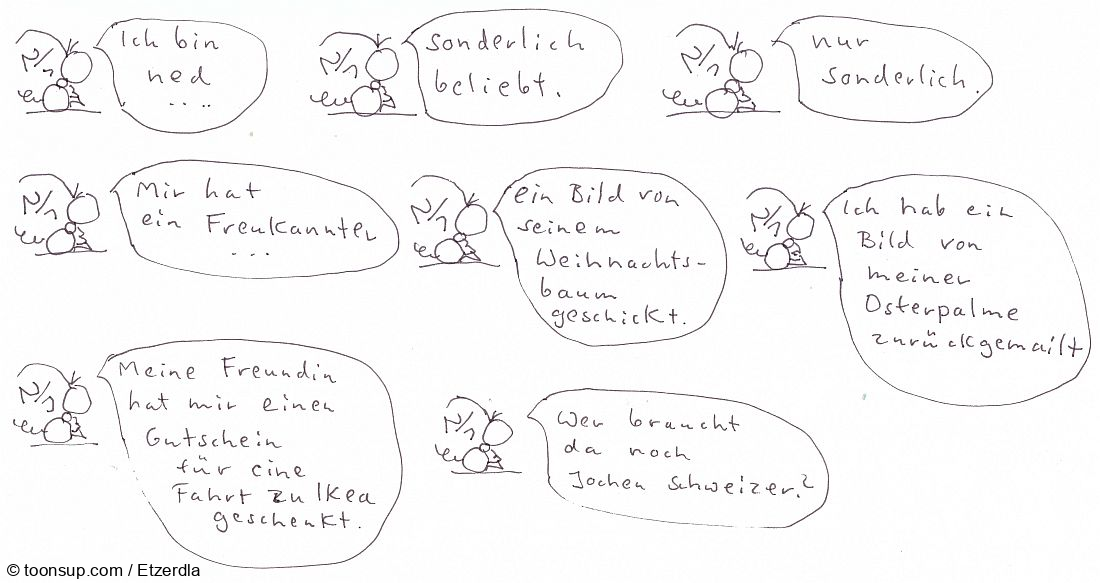 Ich bin
ned
....
sonderlich
beliebt.
nur
sonderlich.
Mir hat
ein Freukannter
...
ein Bild von
seinem
Weihnachts-
baum
geschickt.
Ich hab ein
Bild von
meiner
Osterpalme
zurückgemailt
Meine Freundin
hat mir einen
Gutschein
für eine
Fahrt zu Ikea
geschenkt.
Wer braucht
da noch
Jochen Schweizer?
© toonsup.com / Etzerdla